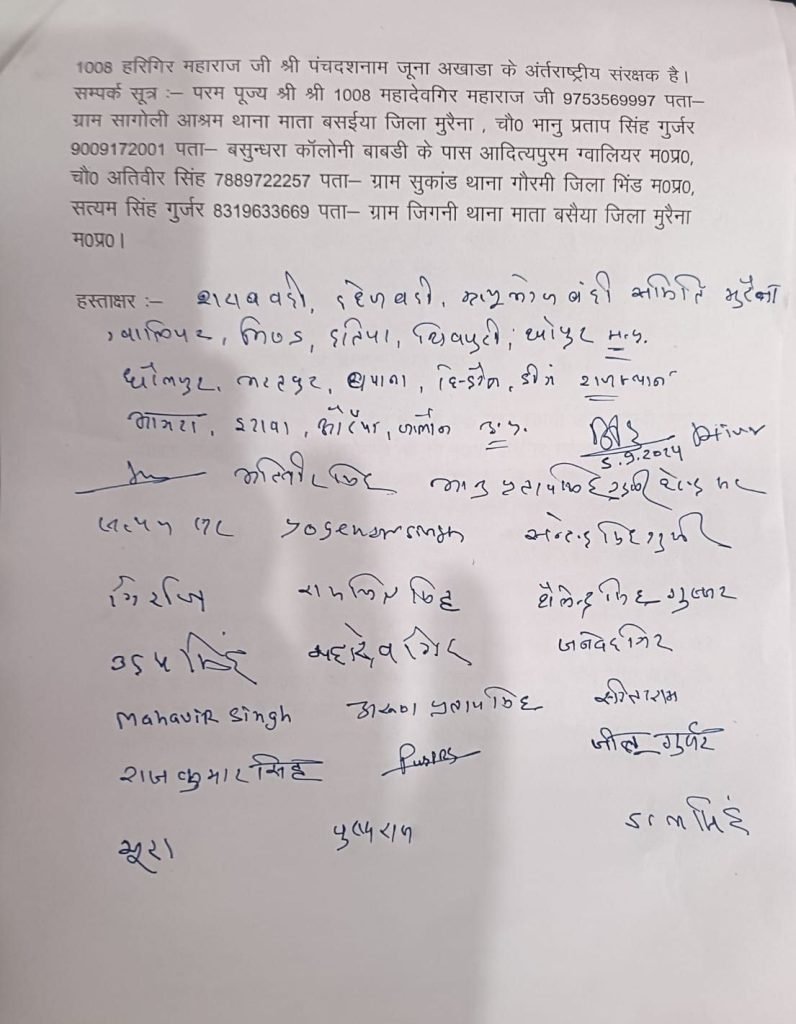 1008 हरिगिर महाराज जी श्री पंचदशनाम जूना अखाडा के अंर्तराष्ट्रीय संरक्षक है।
सम्पर्क सूत्र :– परम पूज्य श्री श्री 1008 महादेवगिर महाराज जी 9753569997 पता–
ग्राम सागोली आश्रम थाना माता बसईया जिला मुरैना , चौ0 भानु प्रताप सिंह गुर्जर
9009172001 पता– बसुन्धरा कॉलोनी बाबडी के पास आदित्यपुरम ग्वालियर म0प्र0,
चौ0 अतिवीर सिंह 7889722257 पता– ग्राम सुकांड थाना गौरमी जिला भिंड म0प्र0,
सत्यम सिंह गुर्जर 8319633669 पता– ग्राम जिगनी थाना माता बसैया जिला मुरैना
म0प्र0।
हस्ताक्षर :– शराबबंदी, दहेजबंदी, बंदी समिति मुरैना
ग्वालियर, भिण्ड, दतिया, शिवपुरी, श्योपुर म.प्र.
धौलपुर, भरतपुर, बयाना, हिन्डौन, डीग राजस्थान
आगरा, इटावा, औरैया, जालौन उ.प्र.
5.9.2024
अतिवीर सिंह भानु प्रताप सिंह
सिंह
गिर्राज सिंह शैलेन्द्र सिंह गुर्जर
सिंह महादेव गिर
Mahavir Singh अरूण प्रताप सिंह सीताराम
राजकुमार सिंह गुर्जर
भूरा सिंह